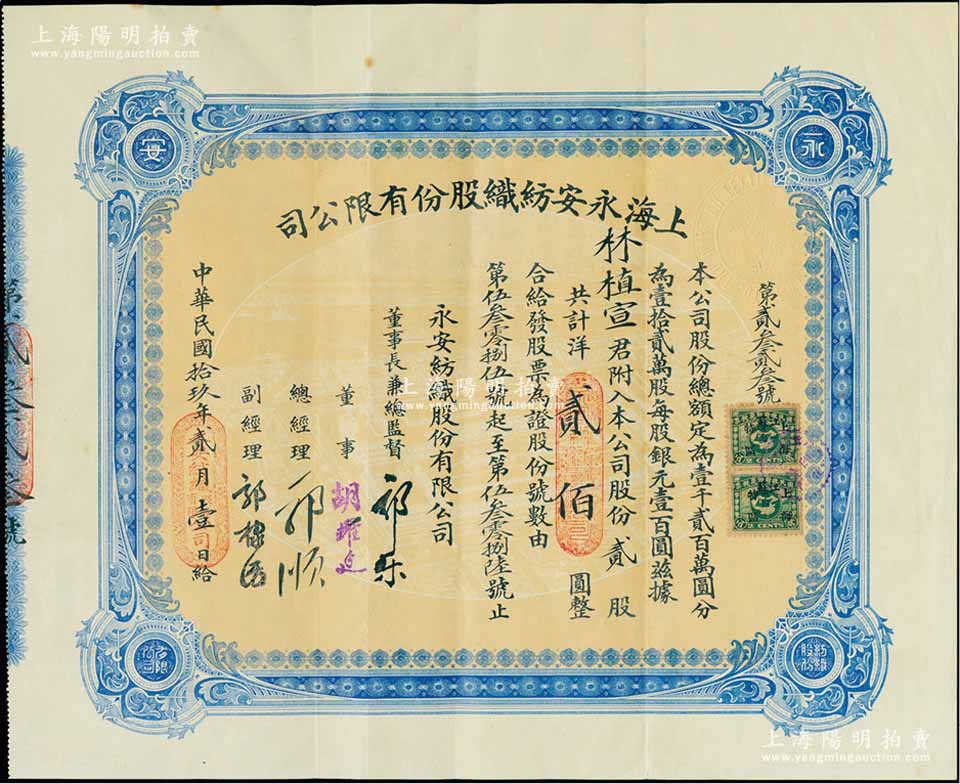 上海陽明拍賣
www.yangmingauction.com
永
安
上海永安紡織股份有限公司
第貳叁貳叁號
本公司股份總額定為壹千貳百萬圓分
為壹拾貳萬股每股銀元壹百圓茲據
林植宣君附入本公司股份貳股
共計洋貳佰圓整
合給發股票為證股份號數由
第伍叁零捌伍號起至第伍叁零捌陸號止
永安紡織股份有限公司
董事長兼總監督 郭樂
董事 胡耀廷
總經理 郭順
副經理 郭棣活
中華民國拾玖年貳月壹日給
上海
2 CENTS
上海
2 CENTS
紡織股份
有限公司
上海陽明拍賣
www.yangmingauction.com
上海陽明拍賣
www.yangmingauction.com